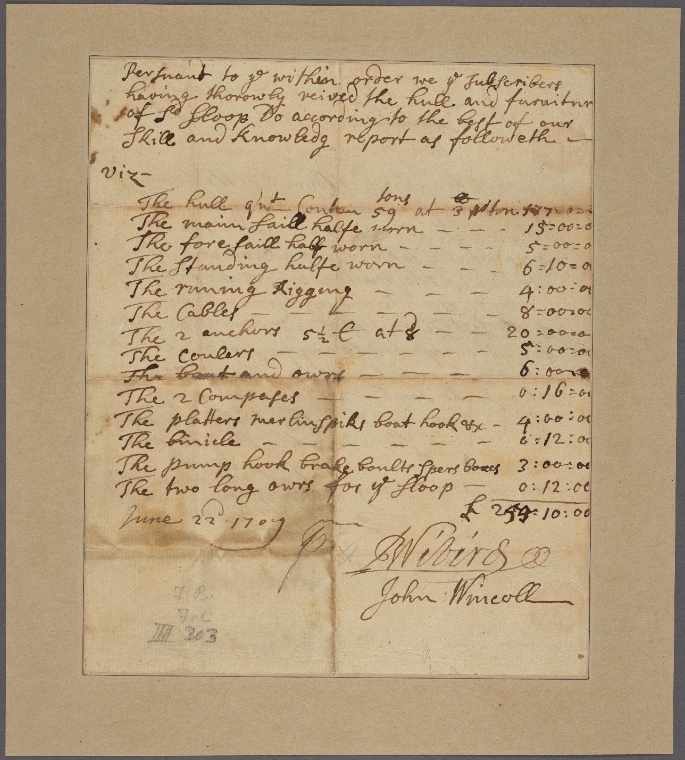 Persuant to yᵉ within order we yᵉ subscribers
having thorowly veived the hull and furnitur
of Sᵈ Sloop Do according to the best of our
Skill and Knowledg report as followeth —
viz—
The hull qⁿᵗ 59 tons at 3 ton 177
The main saill halfe worn - - - 15=00=0
The fore saill half worn - - - 5=00=0
The standing halfe worn - - - 6=10=0
The runing Rigging - - - 4:00:0
The Cables - - - 8=00=00
The 2 anchors 5½ C at 8 - - 20=00=0
The Coulers - - - 5:00:0
The boat and owrs 6:00
The 2 Compases - - - 0:16=0
The platters merlinspiks boat hook &c - 4:00:00
The binicle - - - 0:12:00
The pump hook brake boults spers boxes 3:00:00
The two long owrs for yᵉ sloop — 0:12:00
£ 10:00
June 22ᵈ 1709
RWibird
John Wincoll
303